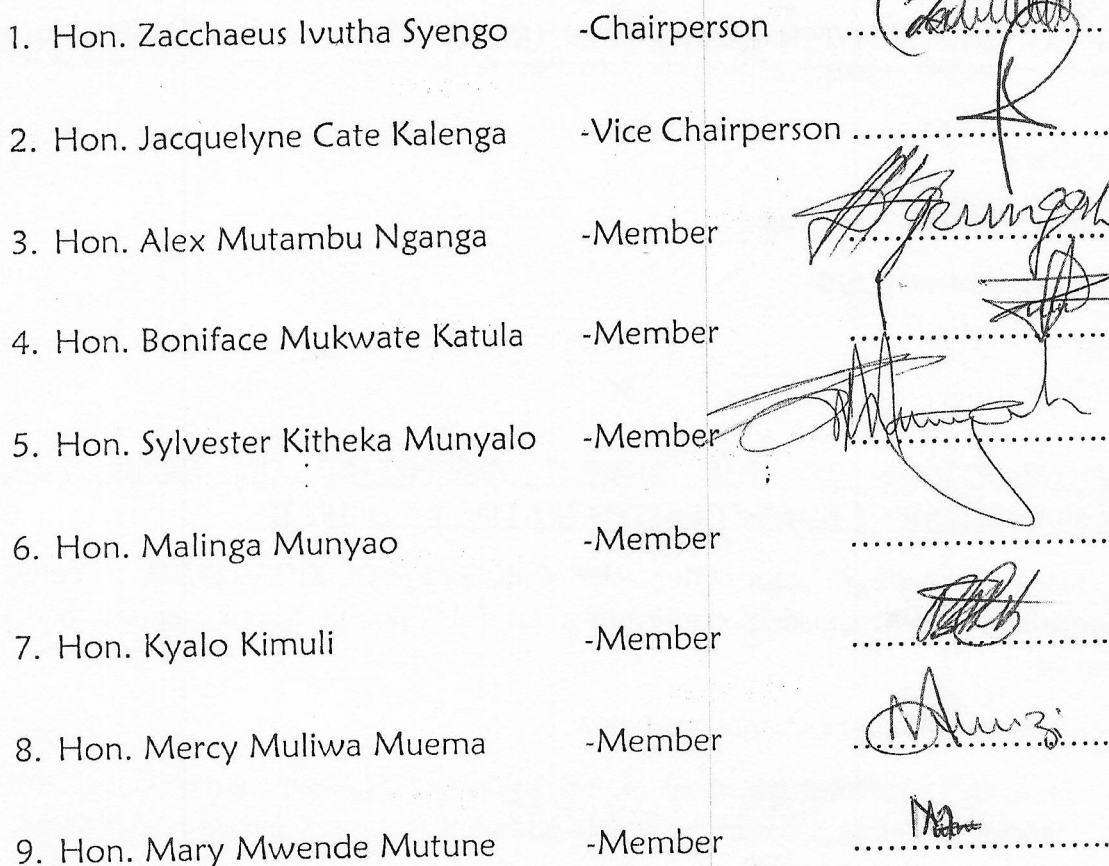 1. Hon. Zacchaeus Ivutha Syengo -Chairperson ....................
2. Hon. Jacquelyne Cate Kalenga -Vice Chairperson ....................
3. Hon. Alex Mutambu Nganga -Member ....................
4. Hon. Boniface Mukwate Katula -Member ....................
5. Hon. Sylvester Kitheka Munyalo -Member ....................
6. Hon. Malinga Munyao -Member ....................
7. Hon. Kyalo Kimuli -Member ....................
8. Hon. Mercy Muliwa Muema -Member ....................
9. Hon. Mary Mwende Mutune -Member ....................